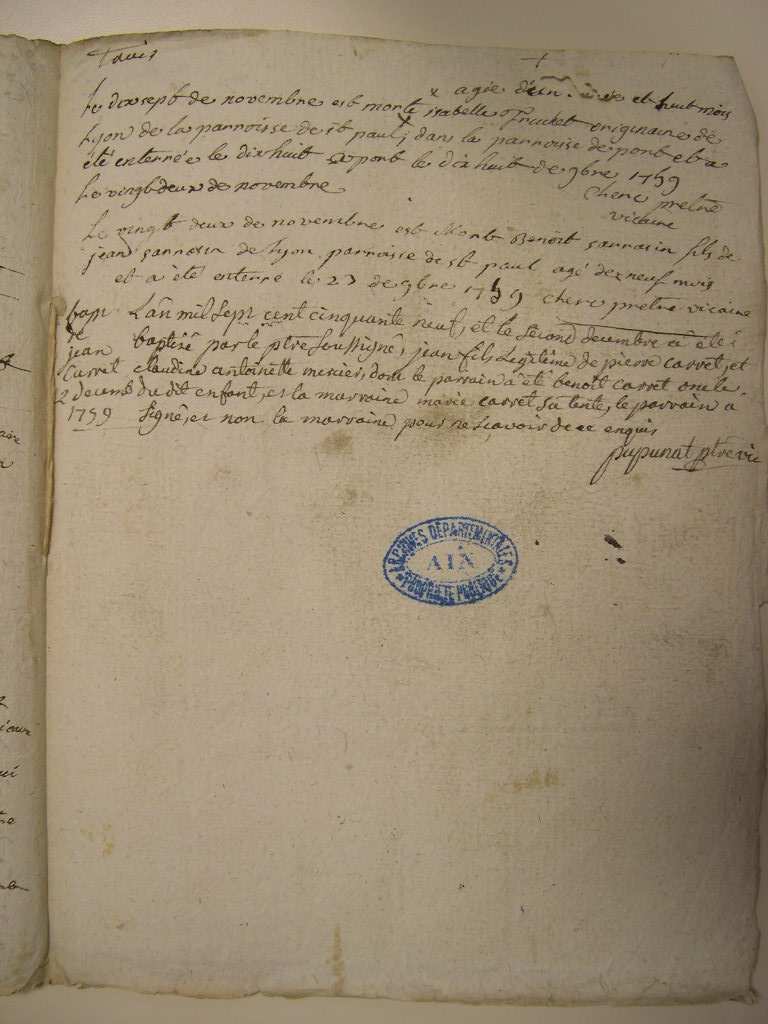 +
x agée d'un et huit mois
Le dixsept de novembre est morte isabelle originaire de
Lyon de la parroisse de st paul, dans la parroisse de pont et a
été enterrée le dix huit a pont le dix huit de 9bre 1759
cherc pretre
vicaire
Le vingt deux de novembre
Le vingt deux de novembre est Mort Benoit sarrasin fils de
jean sarrasin de Lyon parroisse de st paul agé de neuf mois
et a été enterré le 23 de 9bre 1759 cherc pretre vicaire
bapt
de
jean
Carret
2 decemb
1759
L'an mil sept cent cinquante neuf, et le second decembre a été
baptisé par le ptre soussigné, jean fils Legitime de pierre carret, et
claudine antoinette mercier, dont le parrain a été benoit carret oncle
du dit enfant, et la marraine marie carret sa tente, le parrain a
signé, et non la marraine pour ne scavoir de ce enquis
pupunat ptre vic
ARCHIVES DÉPARTEMENTALES
AIN
PROPRIÉTÉ PUBLIQUE